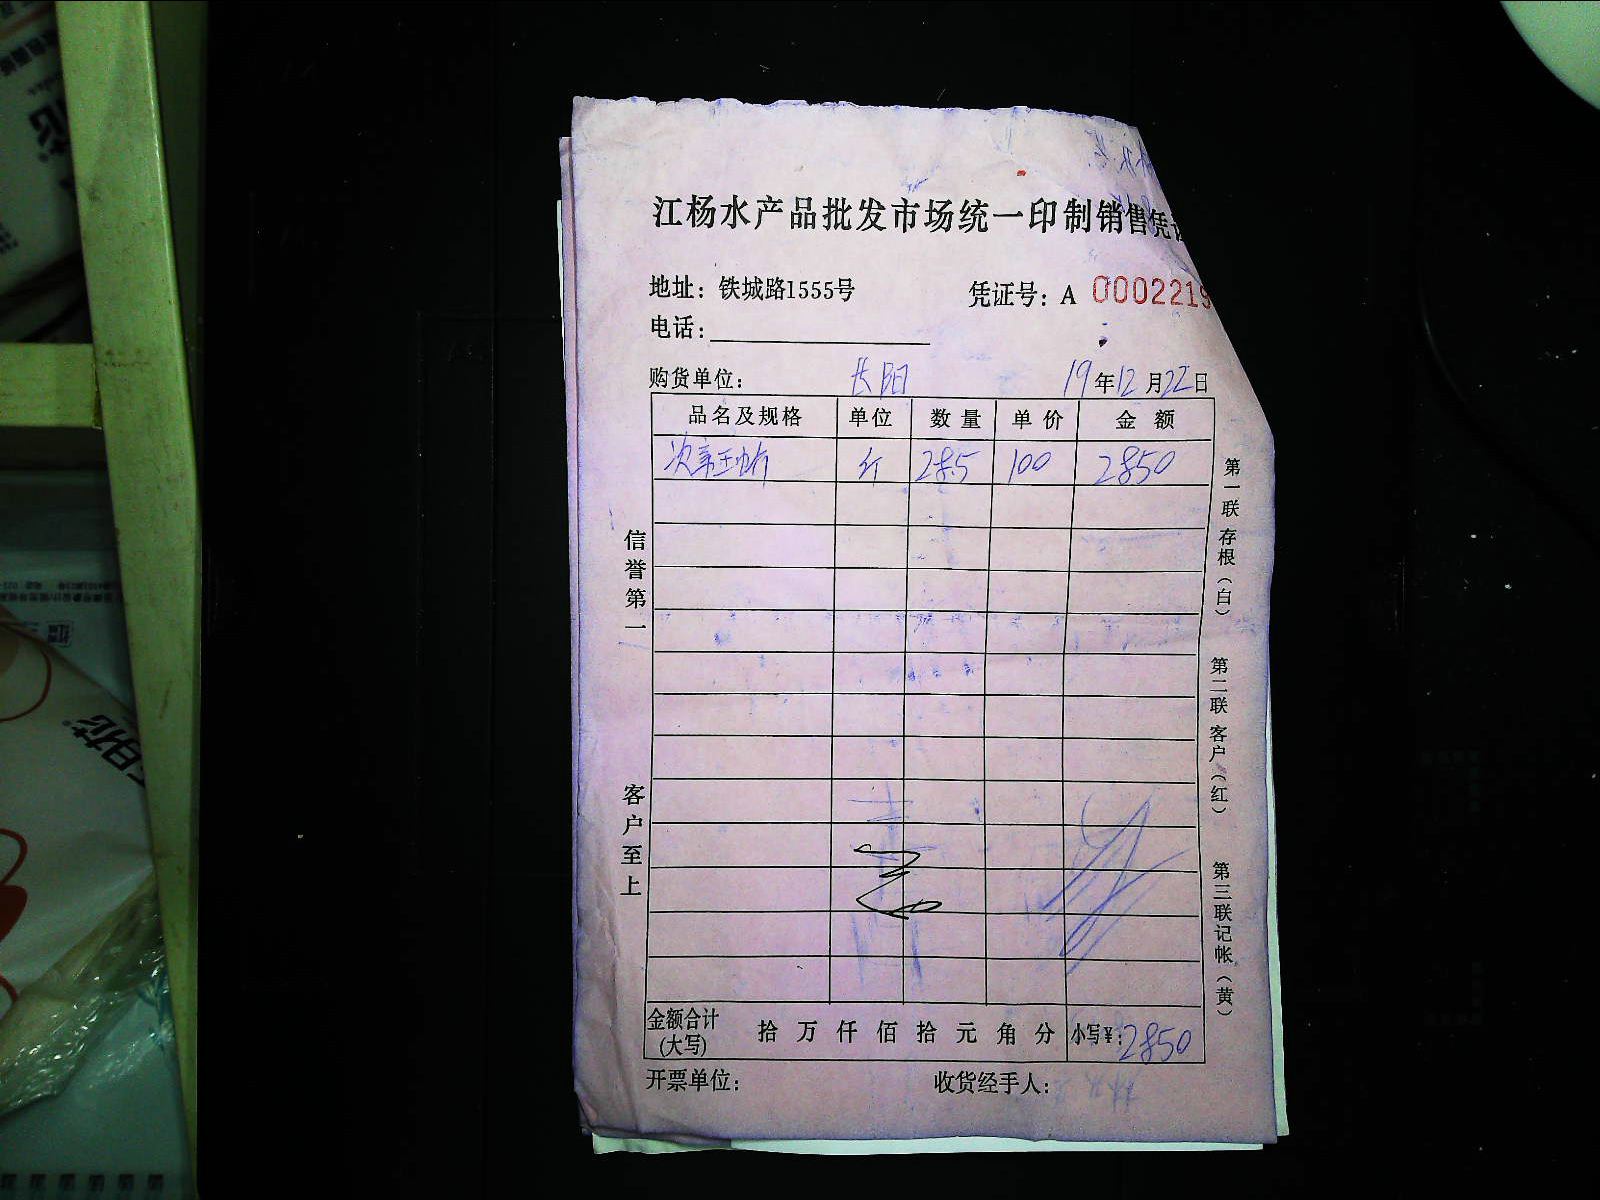 江杨水产品批发市场统一印制销售凭
地址：铁城路1555号
凭证号：A 0002219
电话：
购货单位： 长阳 19年12月22日
品名及规格 单位 数量 单价 金额
斤 28.5 100 2850
信誉第一
客户至上
第一联存根（白）
第二联客户（红）
第三联记帐（黄）
金额合计（大写） 拾万仟佰拾元角分 小写¥：2850
开票单位： 收货经手人：